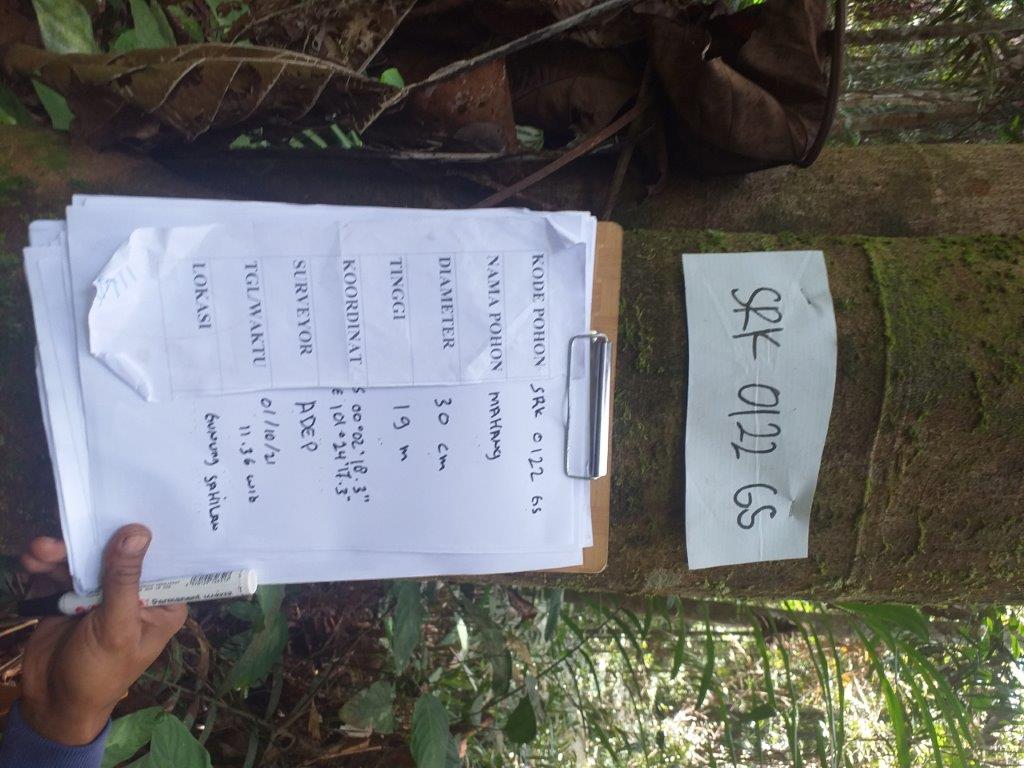 SRK 0122 GS
KODE POHON SRK 0122 GS
NAMA POHON MAHANG
DIAMETER 30 cm
TINGGI 19 m
KOORDINAT S 00°02'18.3"
E 101°24'17.3"
SURVEYOR ADEP
TGL/WAKTU 01/10/21
11.36 WIB
LOKASI GUNUNG SAHILAN
Permanent marker